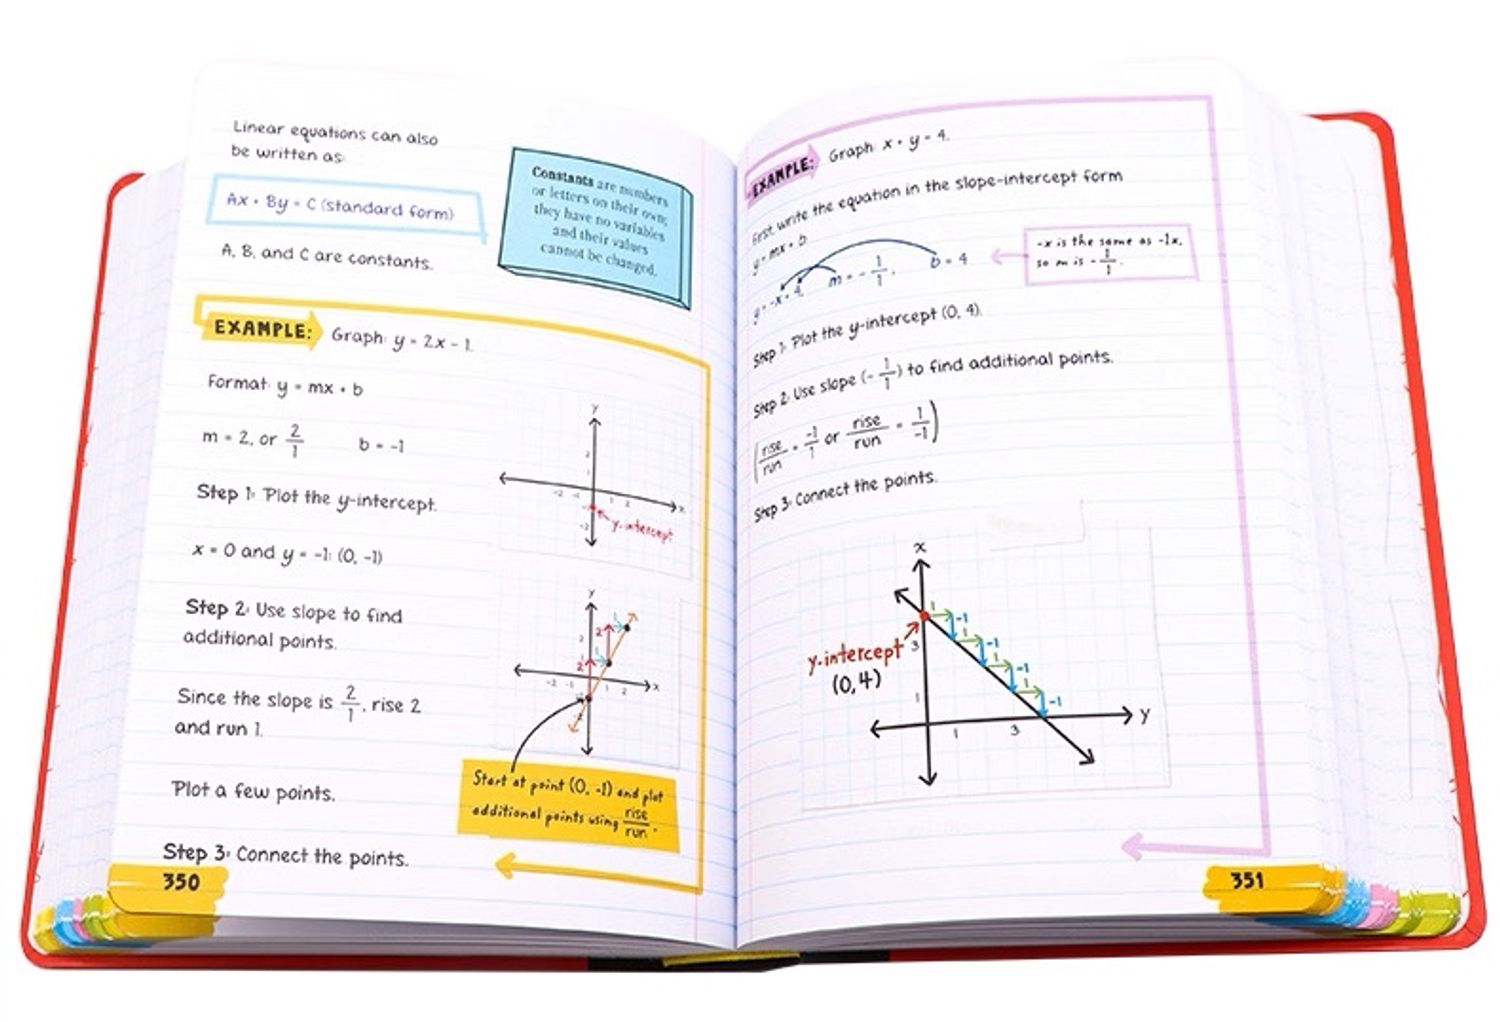 Linear equations can also
be written as:
Ax + By = C (standard form)
A, B, and C are constants.
Constants are numbers
or letters on their own;
they have no variables
and their values
cannot be changed.
EXAMPLE: Graph: y = 2x - 1.
Format: y = mx + b
m = 2, or 2/1 b = -1
Step 1: Plot the y-intercept.
x = 0 and y = -1: (0, -1)
y
2
1
-2 -1 1 2 x
-2
y-intercept
Step 2: Use slope to find
additional points.
Since the slope is 2/1, rise 2
and run 1.
y
2
2
2
-2 -1 1 2 x
Plot a few points.
Start at point (0, -1) and plot
additional points using rise/run.
Step 3: Connect the points.
350
EXAMPLE: Graph: x + y = 4.
First, write the equation in the slope-intercept form
y = mx + b
y = -x + 4 m = - 1/1, b = 4
-x is the same as -1x,
so m is - 1/1.
Step 1: Plot the y-intercept (0, 4).
Step 2: Use slope (- 1/1) to find additional points.
(rise/run = -1/1 or rise/run = 1/-1)
Step 3: Connect the points.
x
1 -1
1 -1
1 -1
1 -1
y-intercept
(0, 4)
3
1
1 3 y
351